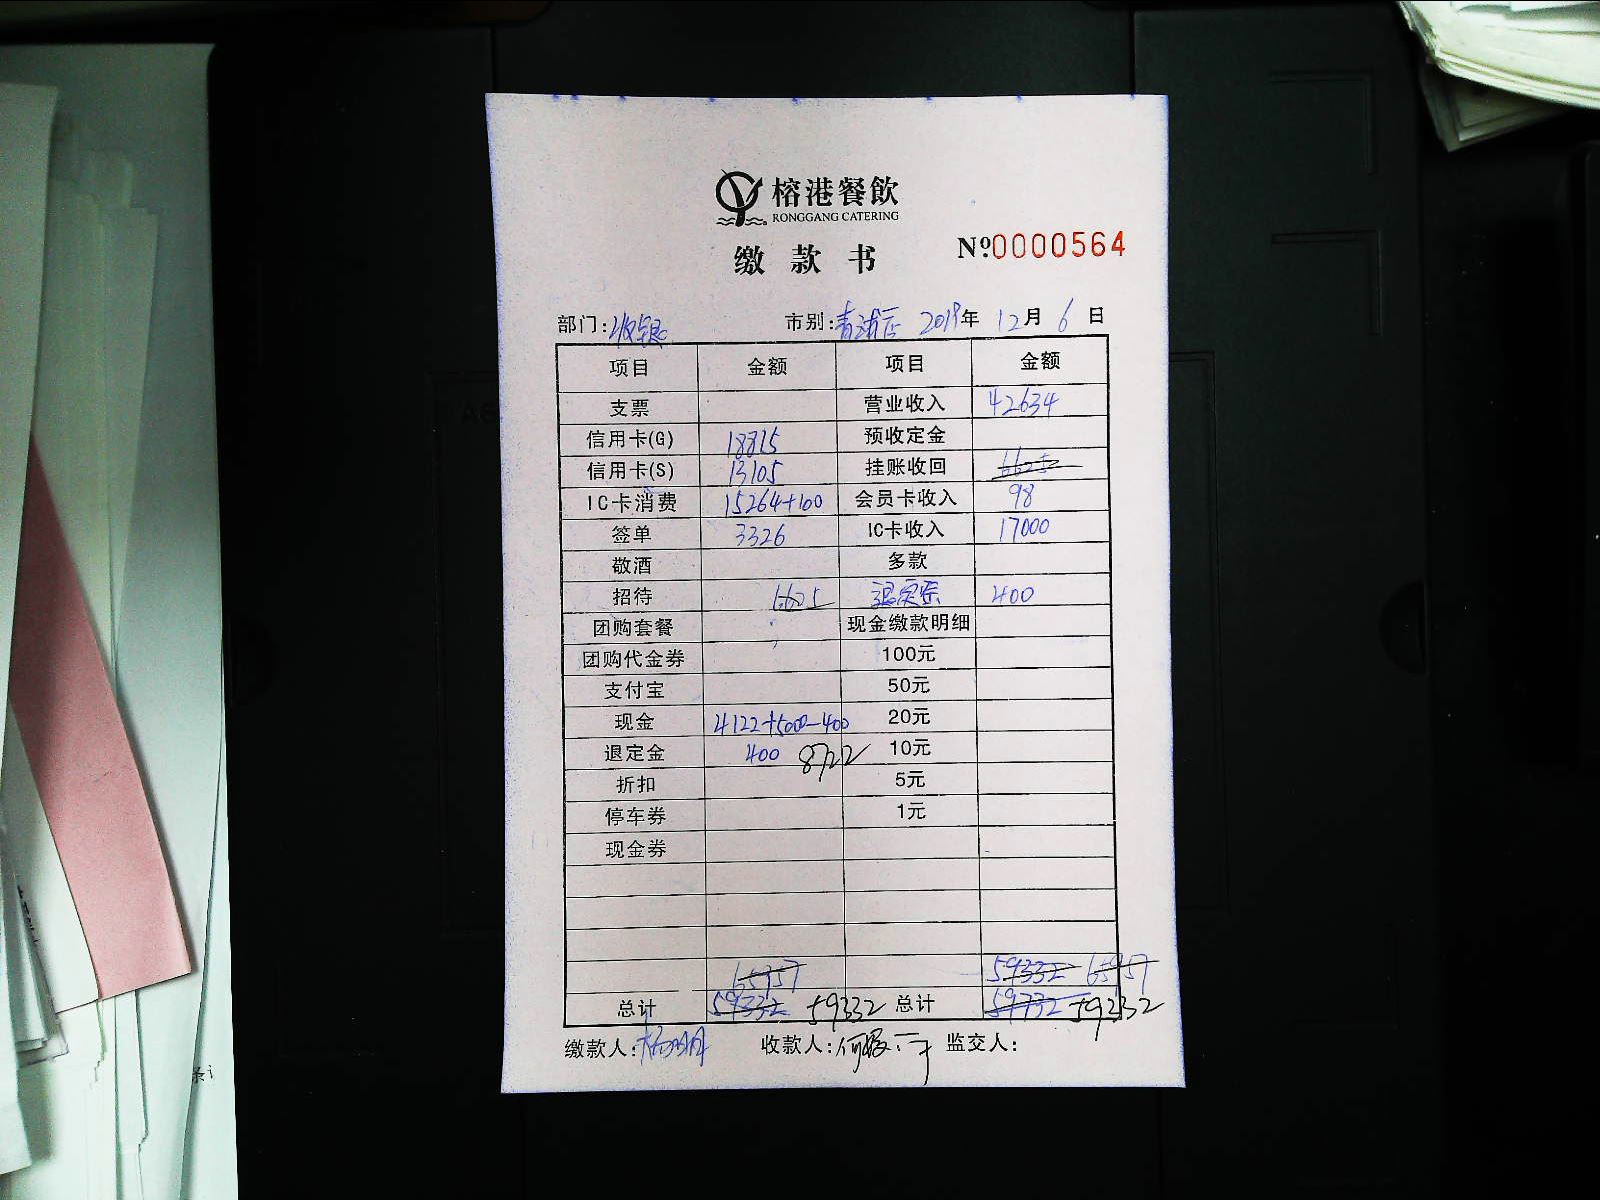 榕港餐飲
RONGGANG CATERING
缴款书 №0000564
部门:收银 市别:青浦店 2019年12月6日
项目 金额 项目 金额
支票 营业收入 42634
信用卡(G) 18815 预收定金
信用卡(S) 13105 挂账收回 6625
IC卡消费 15264+100 会员卡收入 98
签单 3326 IC卡收入 17000
敬酒 多款
招待 6625 400
团购套餐 现金缴款明细
团购代金券 100元
支付宝 50元
现金 4122+5000-400 20元
退定金 400 8722 10元
折扣 5元
停车券 1元
现金券
65957 59332 65957
总计 59332 59332 总计 59732 59332
缴款人: 收款人: 监交人: